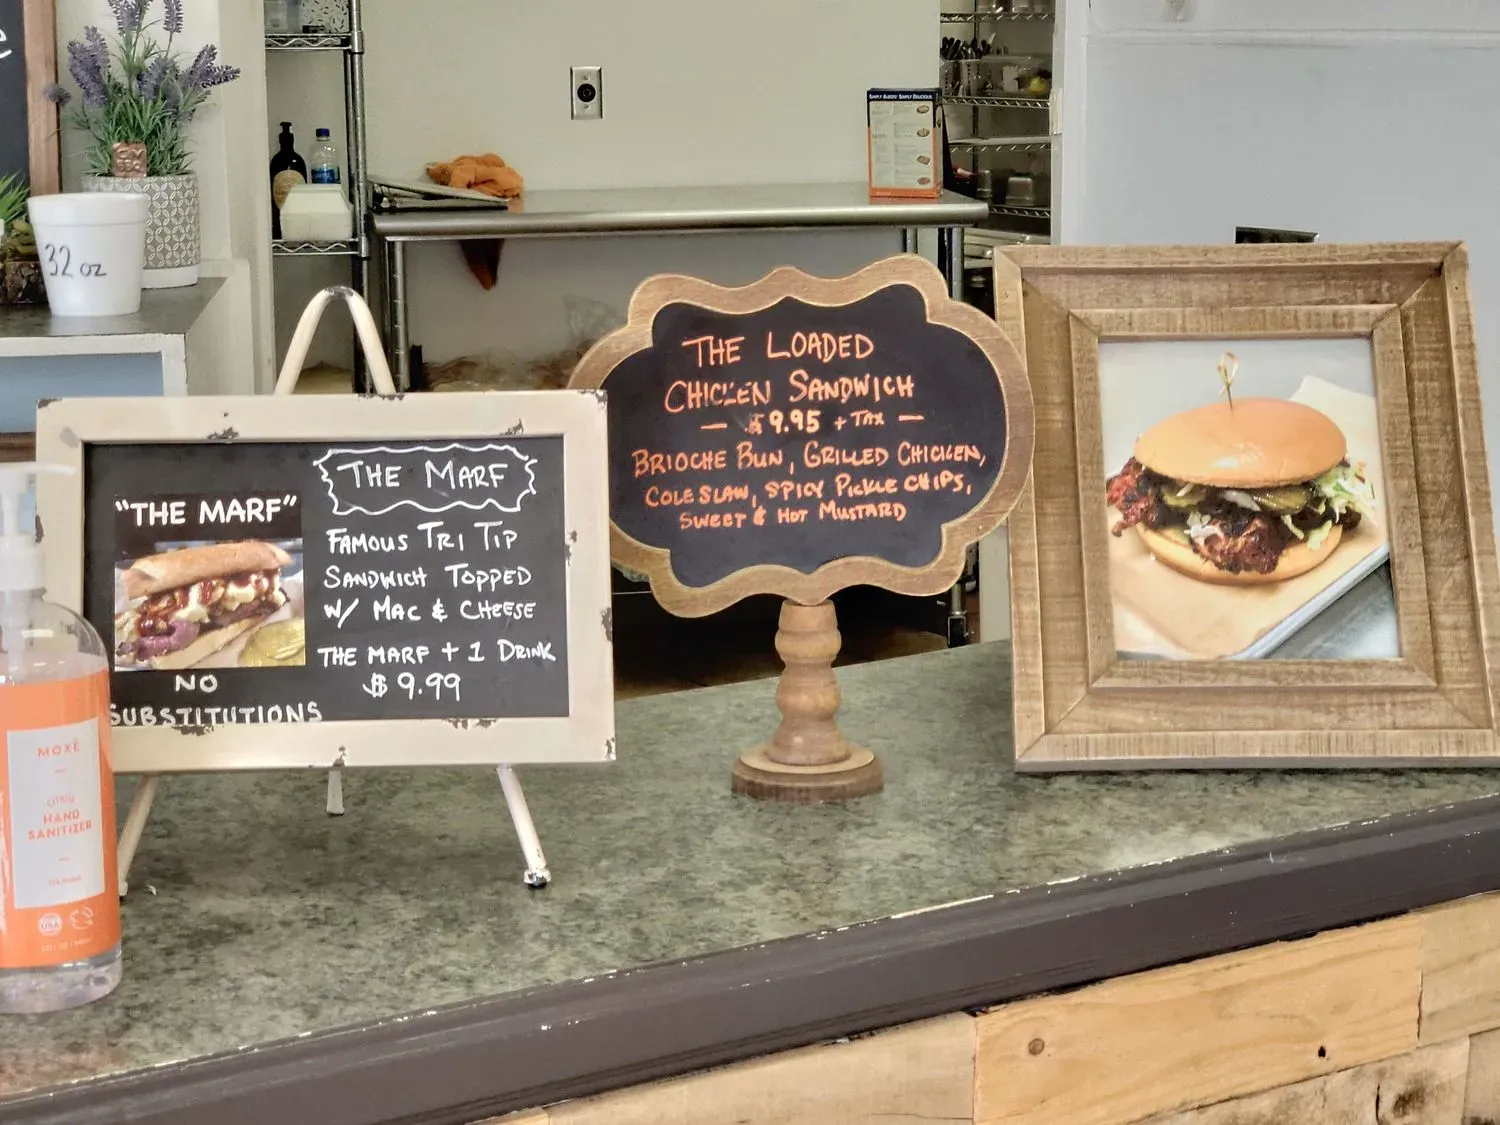 32 oz
SIMPLY ALBERTS' SIMPLY DELICIOUS
"THE MARF"
NO
SUBSTITUTIONS
THE MARF
FAMOUS TRI TIP
SANDWICH TOPPED
W/ MAC & CHEESE
THE MARF + 1 DRINK
$9.99
THE LOADED
CHICKEN SANDWICH
— $9.95 + TAX —
BRIOCHE BUN, GRILLED CHICKEN,
COLESLAW, SPICY PICKLE CHIPS,
SWEET & HOT MUSTARD
MOXĒ
CITRUS
HAND
SANITIZER
USA